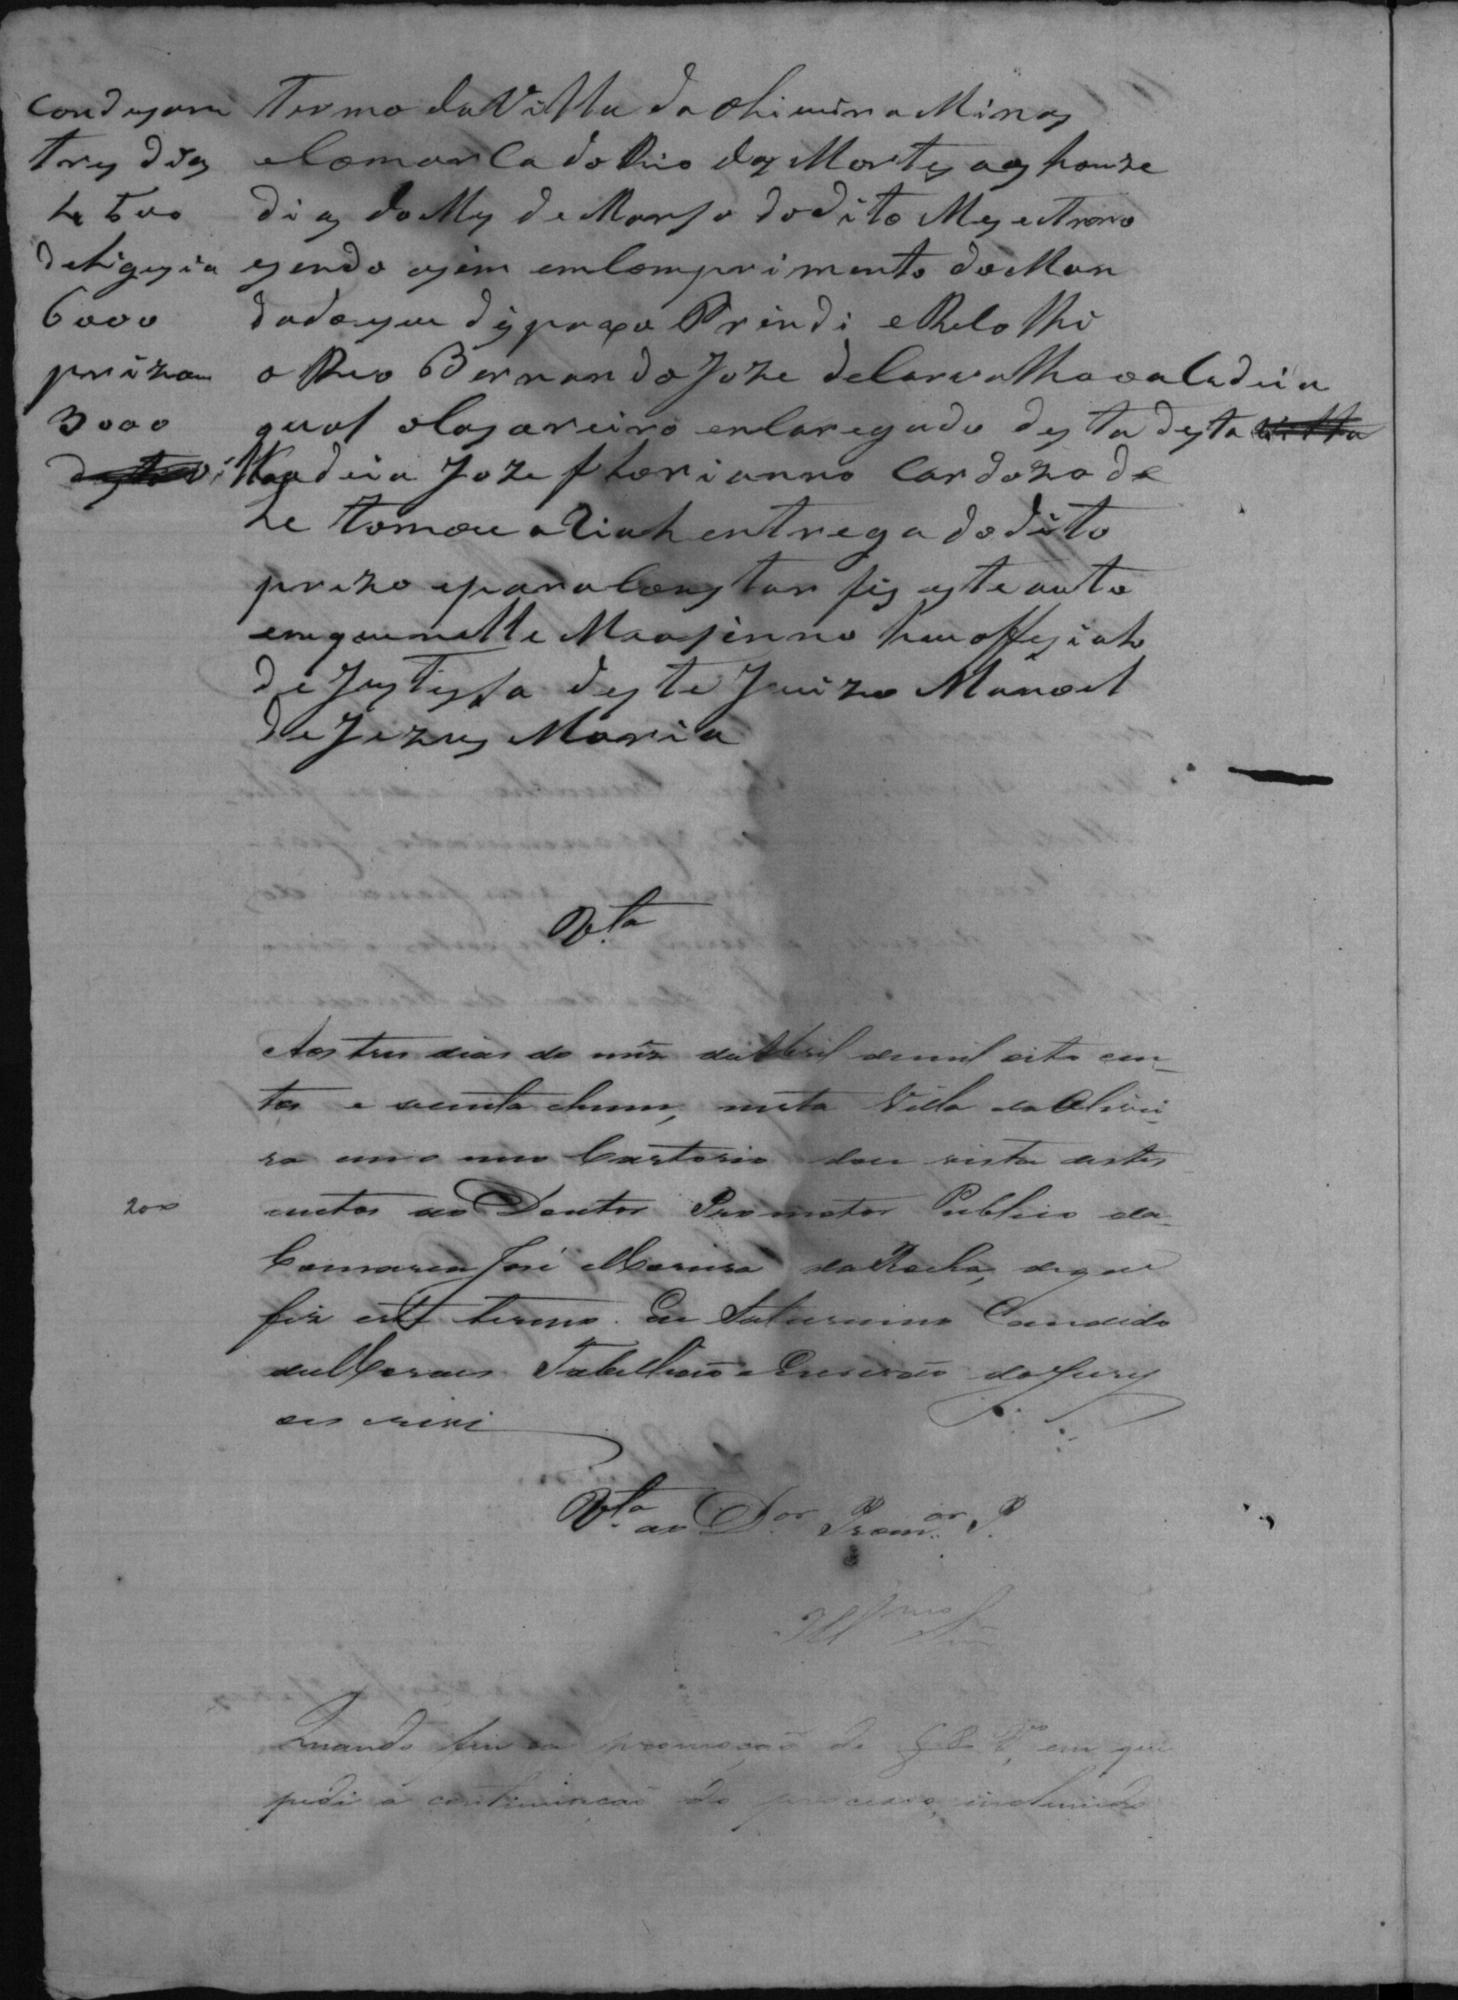 Condusam
trez diaz
hetuo
deligesia
6000
prizam
3000
Termo da Villa da Oliveira Minaz
eComarca do Rio daz Mortes aos honze
diaz do Mez de Marso do dito Mez e Anno
sendo asim em Comprimento do Man
dado que dis para Prindi e Recolhi
o Reo Bernardo Joze de Carvalho a Cadeia
qual o Casareiro encaregado desta desta villa
desta vi Cadeia Joze Florianno Cardozo de
he tomou a Riah entrega do dito
prezo e para Constar fiz este auto
em que me Asinno heu offisiah
de Justissa deste Juizo Manoel
de Jezus Maria
V.ta
Aos tres dias do mêz de Abril de mil oito cen-
tos e setenta e hum, nesta Villa da Olivei-
ra em o meu Cartorio dou vista destes
200
autos ao Doutor Promotor Publico da
Comarca José Moreira da Rocha, de que
fiz este termo. Eu Saturnino Candido
de Moraes Tabellião e Escrivão do Jury
escrevi
V.ta ao D.or Prom.or P.
Ill.mo Sn.
Quando fiz a promoção de f 8 v, em que
pedi a continuacão do processo, incluindo